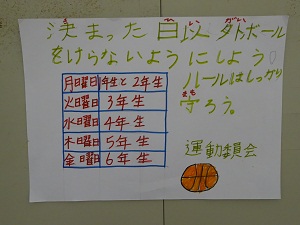 決まった日以外ボール
をけらないようにしよう。
ルールはしっかり
守ろう。
月曜日 1年生と2年生
火曜日 3年生
水曜日 4年生
木曜日 5年生
金曜日 6年生
運動委員会